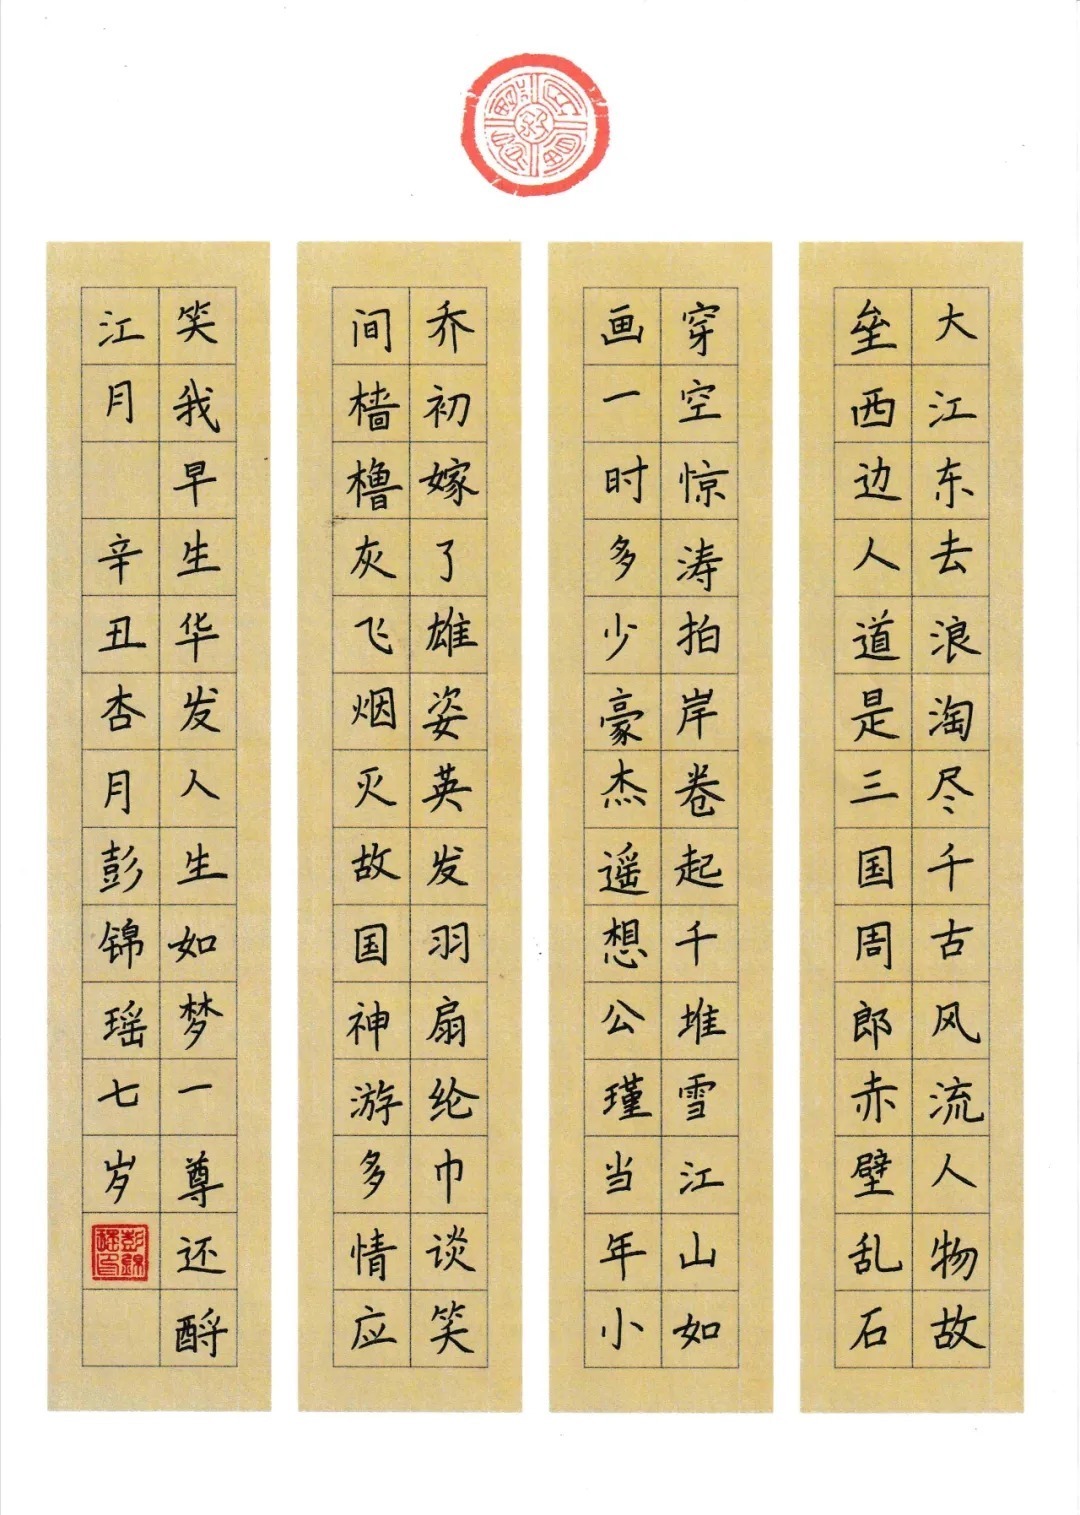 大江东去浪淘尽千古风流人物故
垒西边人道是三国周郎赤壁乱石
穿空惊涛拍岸卷起千堆雪江山如
画一时多少豪杰遥想公瑾当年小
乔初嫁了雄姿英发羽扇纶巾谈笑
间樯橹灰飞烟灭故国神游多情应
笑我早生华发人生如梦一尊还酹
江月 辛丑杏月彭锦瑶七岁